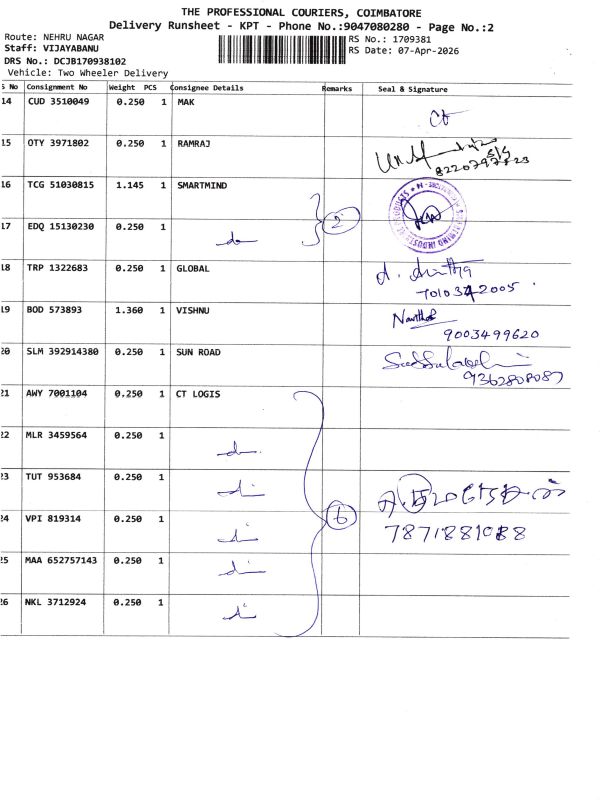 THE PROFESSIONAL COURIERS, COIMBATORE
Delivery Runsheet - KPT - Phone No.:9047080280 - Page No.:2
Route: NEHRU NAGAR
RS No.: 1709381
Staff: VIJAYABANU
RS Date: 07-Apr-2026
DRS No.: DCJB170938102
Vehicle: Two Wheeler Delivery
S No Consignment No Weight PCS Consignee Details Remarks Seal & Signature
14 CUD 3510049 0.250 1 MAK
15 OTY 3971802 0.250 1 RAMRAJ
8220797723
16 TCG 51030815 1.145 1 SMARTMIND
2
17 EDQ 15130230 0.250 1
18 TRP 1322683 0.250 1 GLOBAL
7010342005
19 BOD 573893 1.360 1 VISHNU
9003499620
20 SLM 392914380 0.250 1 SUN ROAD
9362808087
21 AWY 7001104 0.250 1 CT LOGIS
22 MLR 3459564 0.250 1
23 TUT 953684 0.250 1
24 VPI 819314 0.250 1
6
7871881088
25 MAA 652757143 0.250 1
26 NKL 3712924 0.250 1